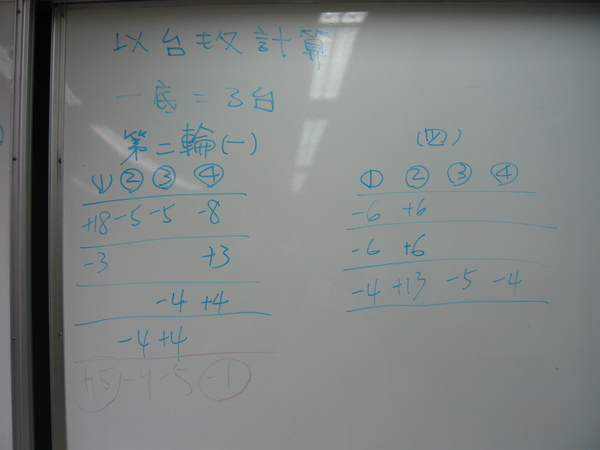 以台數計算
一底=3台
第二輪(一)
① ② ③ ④
+18 -5 -5 -8
-3 +3
-4 +4
-4 +4
+15 -9 -5 -1
(四)
① ② ③ ④
-6 +6
-6 +6
-4 +13 -5 -4